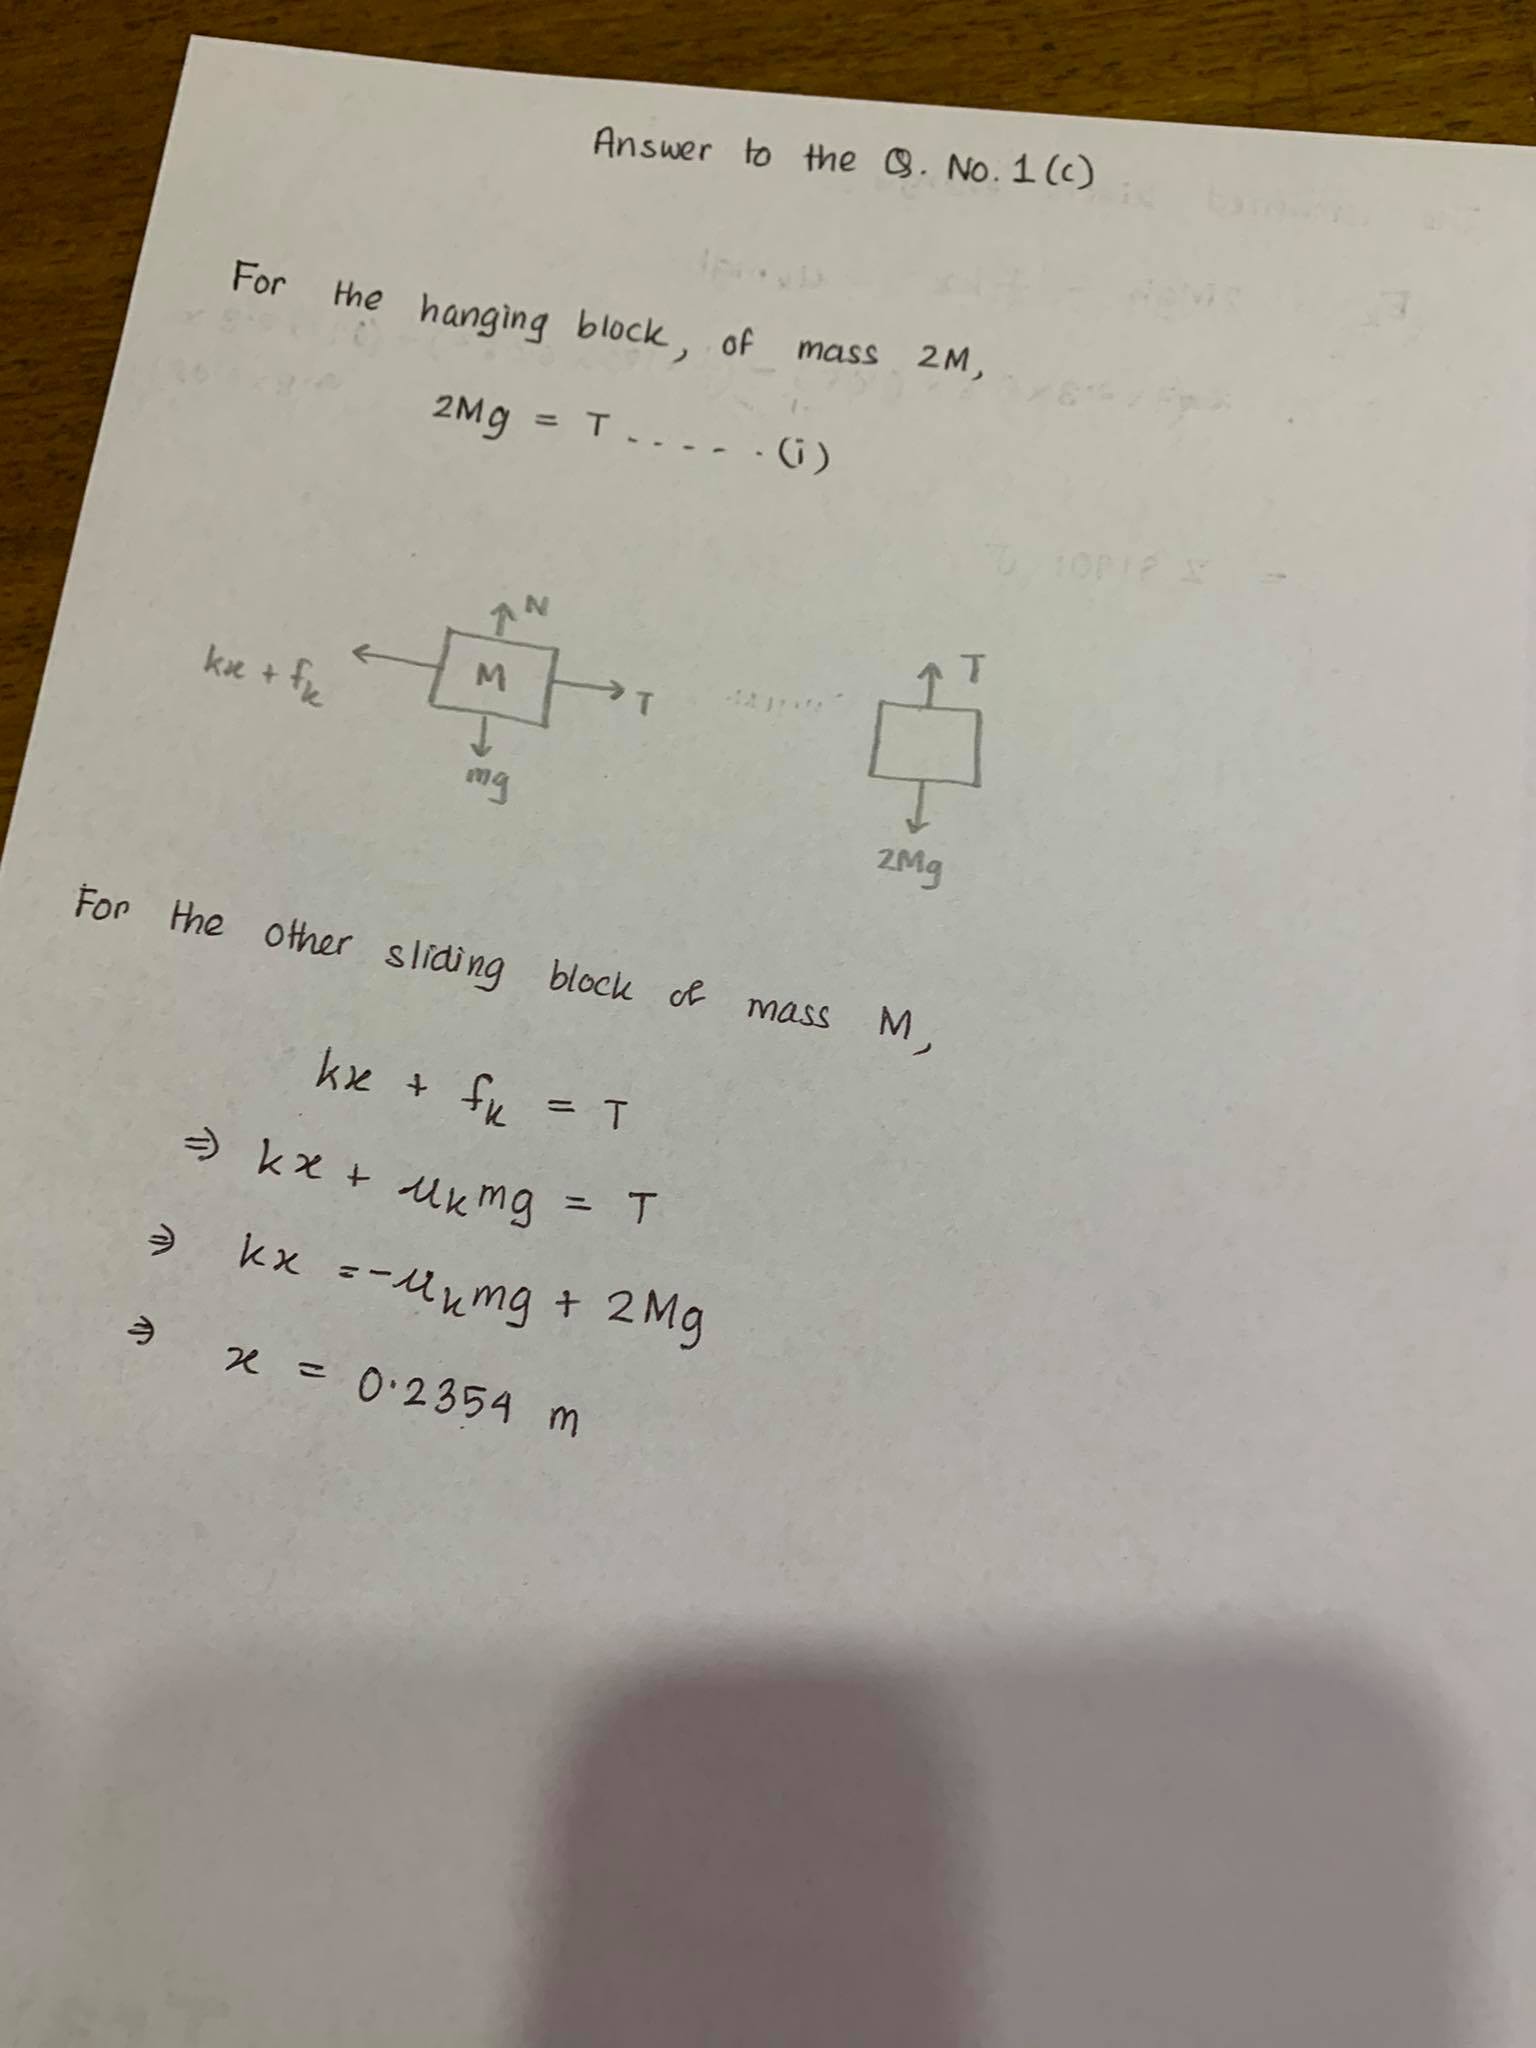 Answer to the Q. No. 1(c)
For the hanging block, of mass 2M,
2Mg = T ...... (i)
N
kx + fk
M
T
mg
T
2Mg
For the other sliding block of mass M,
kx + fk = T
⇒ kx + μk mg = T
⇒ kx = -μk mg + 2Mg
⇒ x = 0.2354 m